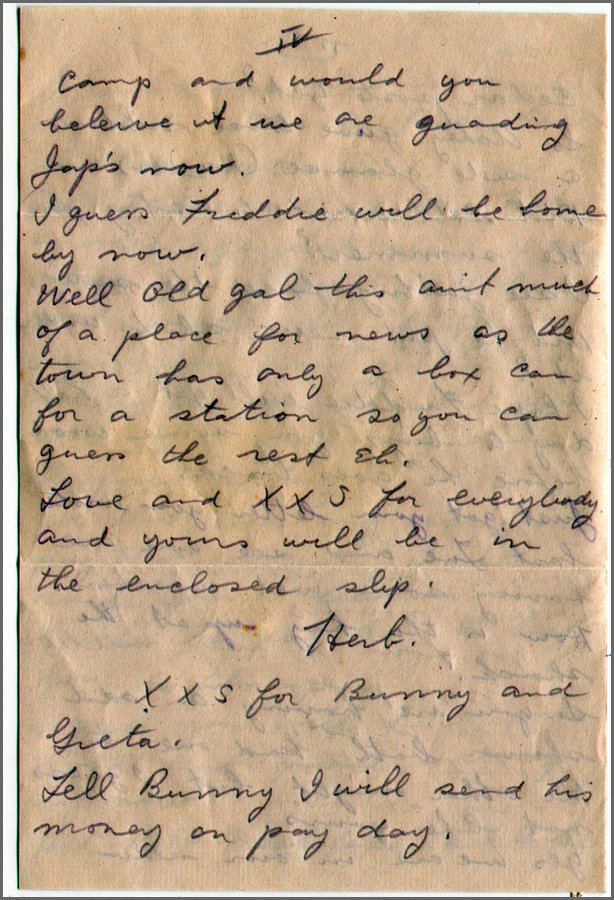 IV
camp and would you
beleive it we are guading
Jap's now.
I guess Freddie will be home
by now.
Well Old gal this aint much
of a place for news as the
town has only a box car
for a station so you can
guess the rest Eh.
Love and X X S for everybody
and yours will be in
the enclosed slip.
Herb.
X X S for Bunny and
Greta.
Tell Bunny I will send his
money on pay day.